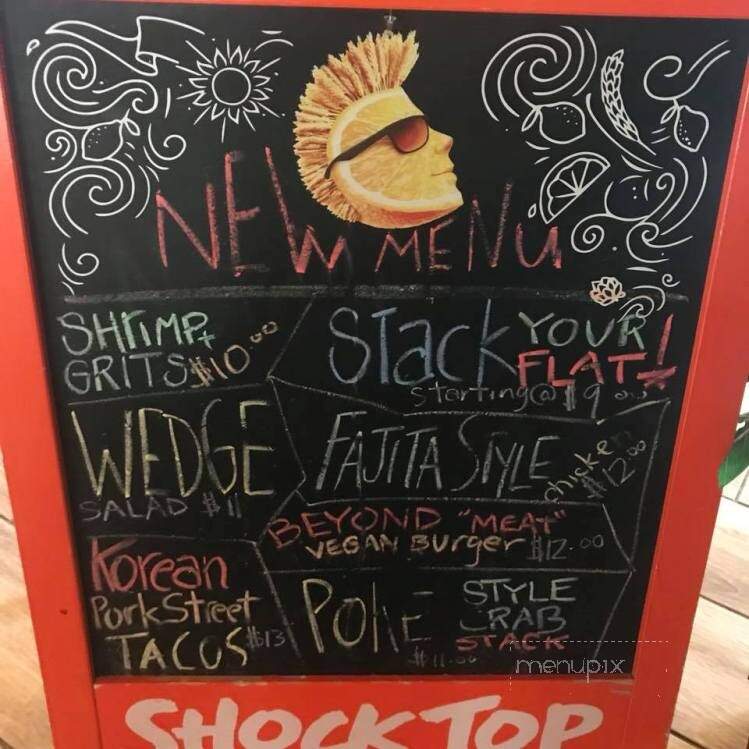 NEW MENU
SHRIMP +
GRITS $10.00
Stack YOUR
FLAT!
Starting @ $9.00
WEDGE
SALAD $11
FAJITA STYLE
chicken
$12.00
BEYOND "MEAT"
VEGAN Burger $12.00
Korean
Pork Street
TACOS $13
POKE STYLE
CRAB
STACK
$11.00
menupix
SHOCK TOP